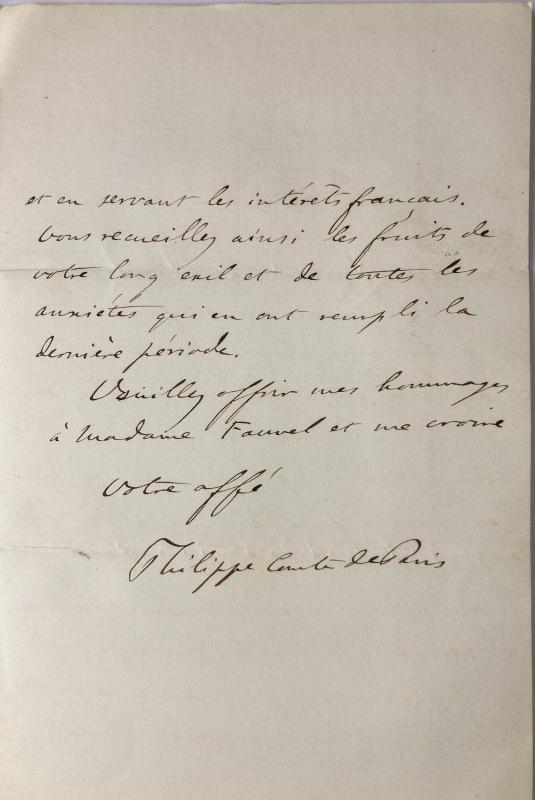 et en servant les intérêts français.
Vous recueillez ainsi les fruits de
votre long exil et de toutes les
anxiétés qui en ont rempli la
dernière période.
Veuillez offrir mes hommages
à Madame Fauvel et me croire
Votre affé
Philippe Comte de Paris